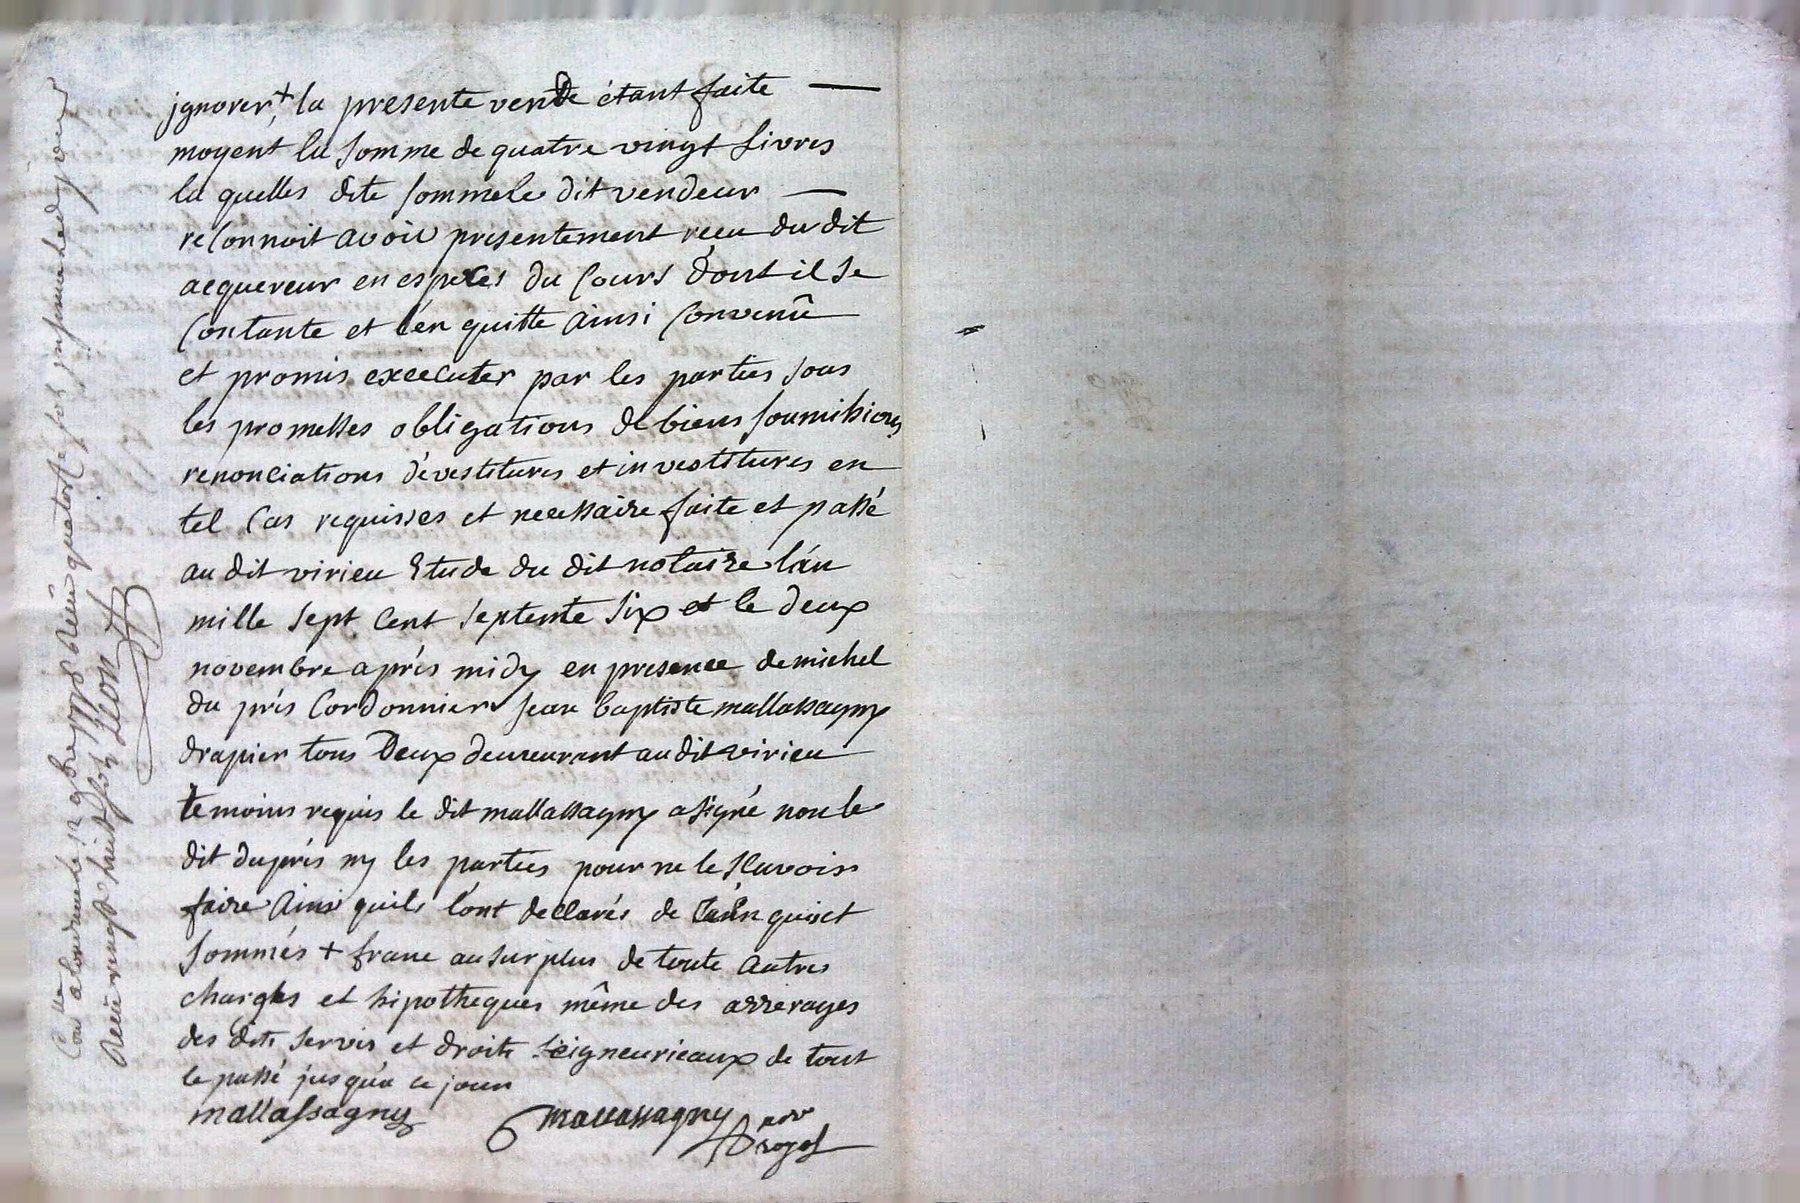 jgnorer,+ la presente vente étant faite —
moyent la somme de quatre vingt livres
la quelles dite somme le dit vendeur —
reconnoit avoir presentement reçu du dit
acquereur en especes du cours dont il se
contante et l'en quitte ainsi convenû
et promis exeecuter par les parties sous
les promesses obligations de biens soumissions
renonciations dévestitures et investitures en
tel cas requisses et necessaire faite et passé
au dit virieu Etude du dit notaire l'an
mille sept cent septente six et le deux
novembre aprés midy en presence de michel
du prés Cordonnier jean baptiste mallassagny
drapier tous Deux demeurant au dit virieu
temoins requis le dit mallassagny a signé non le
dit duprés ny les parties pour ne le sçavoir
faire Ainsi quils l'ont declarés de enquis et
sommés + franc au surplus de toute autres
charges et hipotheques même des arrerages
des dits servis et droits seigneurieaux de tout
le passé jusqu'a ce jour
mallassagny mallassagny
royol
Con lle a 12 9bre 1776 Reçu quatorze sols
Reçu vingt huit sols Leon